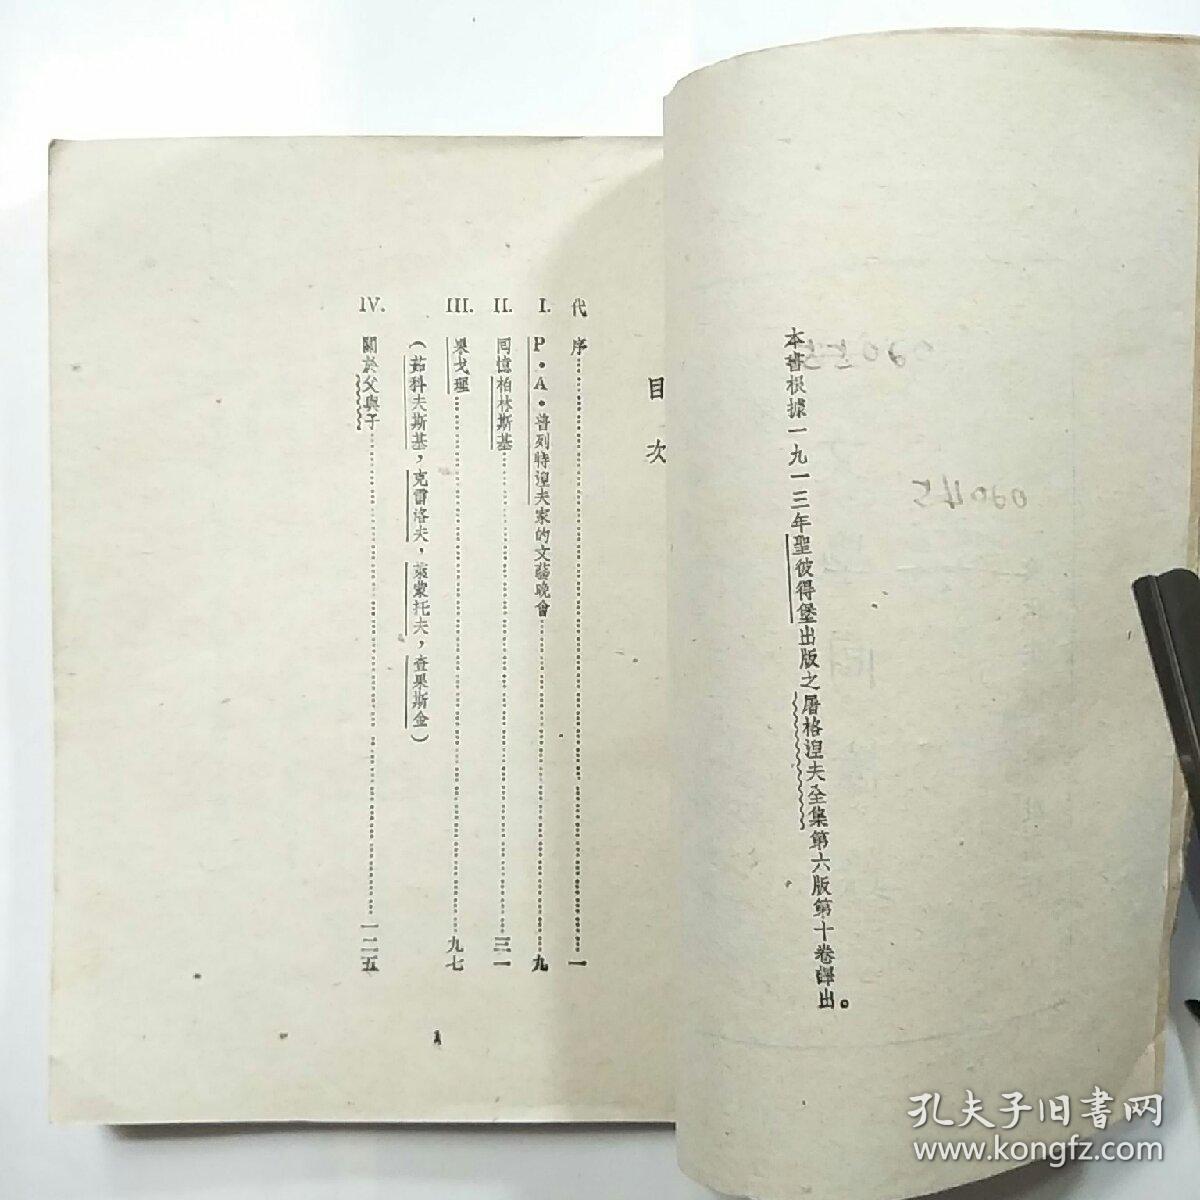 本書根據一九一三年聖彼得堡出版之屠格涅夫全集第六版第十卷譯出。
目次
代序……一
I. P·A·普列特涅夫家的文藝晚會……九
II. 回憶柏林斯基……三一
III. 果戈理……九七
(茹科夫斯基，克雷洛夫，萊蒙托夫，查果斯金)
IV. 關於父與子……一二五
1
孔夫子旧書网
www.kongfz.com